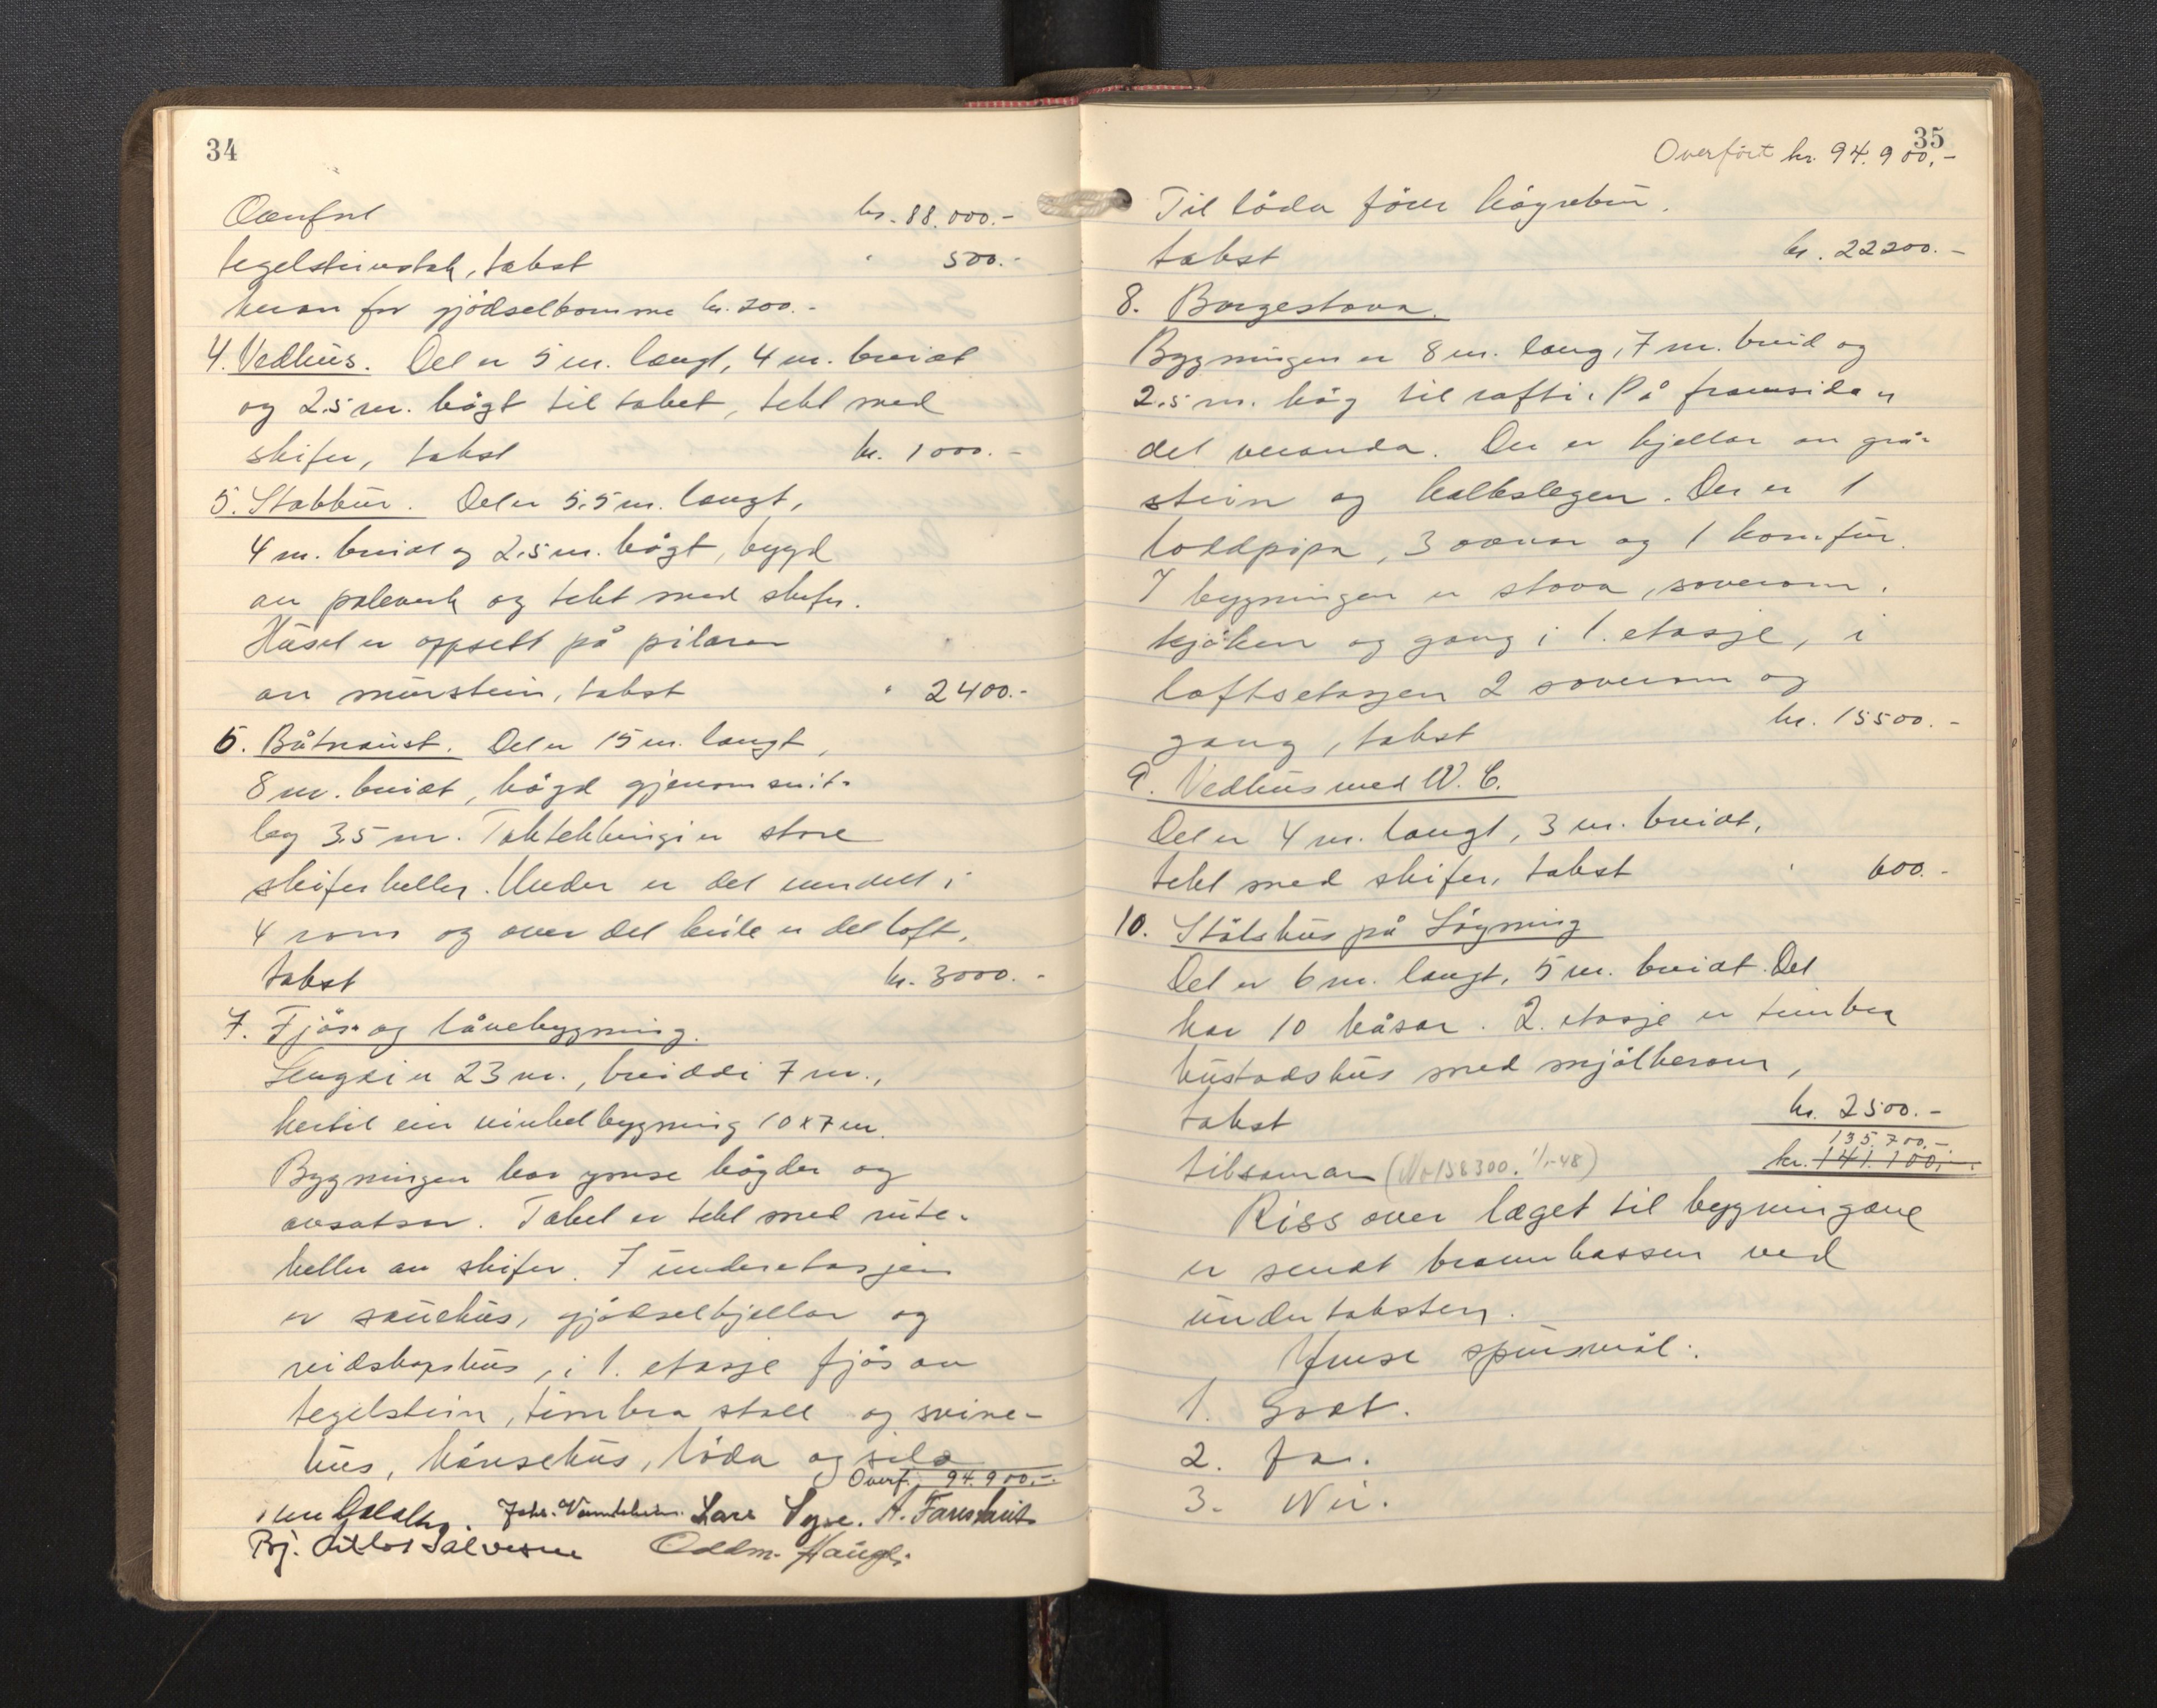 34
Overført kr. 88.000.-
tegelsteinstak, takst " 500.-
herav for gjödselkomme kr. 200.-
4. Vedhus. Det er 5 m. langt, 4 m. breidt
og 2.5 m. högt til taket, tekt med
skifer, takst kr. 1000.-
5. Stabbur. Det er 5.5 m. langt,
4 m. breidt og 2.5 m. högt, bygd
av paleverk og tekt med skifer.
Huset er oppsett på pilarar
av murstein, takst " 2400.-
6. Båtnaust. Det er 15 m. langt,
8 m. breidt, högd gjenomsnit-
leg 3.5 m. Taktekkingi er store
skiferheller. Under er det inndelt i
4 rom og over det heile er det loft,
takst kr. 3000.-
7. Fjös- og låvebygning.
Lengdi er 23 m., breiddi 7 m.,
hertil ein vinkelbygning 10 x 7 m.
Bygningen har ymse högder og
avsatsar. Taket er tekt med rute-
heller av skifer. I underetasjen
er sauehus, gjödselkjellar og
reidskapshus, i 1. etasje fjös av
tegelstein, timbra stall og svine-
hus, hönsehus, löda og silo
Overf. 94.900.-
Lars Syse. A.
Bj. Salvesen Oddm. Haugli
35
Overfört kr. 94.900,-
Til löda förer högrebru.
takst kr. 22200.-
8. Borgestova.
Bygningen er 8 m. lang, 7 m. breid og
2.5 m. hög til rafti. På framsida er
det veranda. Der er kjellar av grå-
stein og kalkslegen. Der er 1
loddpipa, 3 ovnar og 1 komfur.
I bygningen er stova, soverom,
kjöken og gang i 1. etasje, i
loftsetasjen 2 soverom og
gang, takst kr. 15500.-
9. Vedhus med W.C.
Det er 4 m. langt, 3 m. breidt,
tekt med skifer, takst " 600.-
10. Stölshus på Lögning
Det er 6 m. langt, 5 m. breidt. Det
har 10 båsar. 2. etasje er timbra
bustadshus med mjölkerom,
takst kr. 2500.-
135.700.-
tilsaman (Nr 158300. 1/1-48) kr. 141.100.-
Riss over læget til bygningane
er sendt brannkassen ved
undertaksten.
Ymse spursmål:
1. Godt.
2. Ja.
3. Nei.